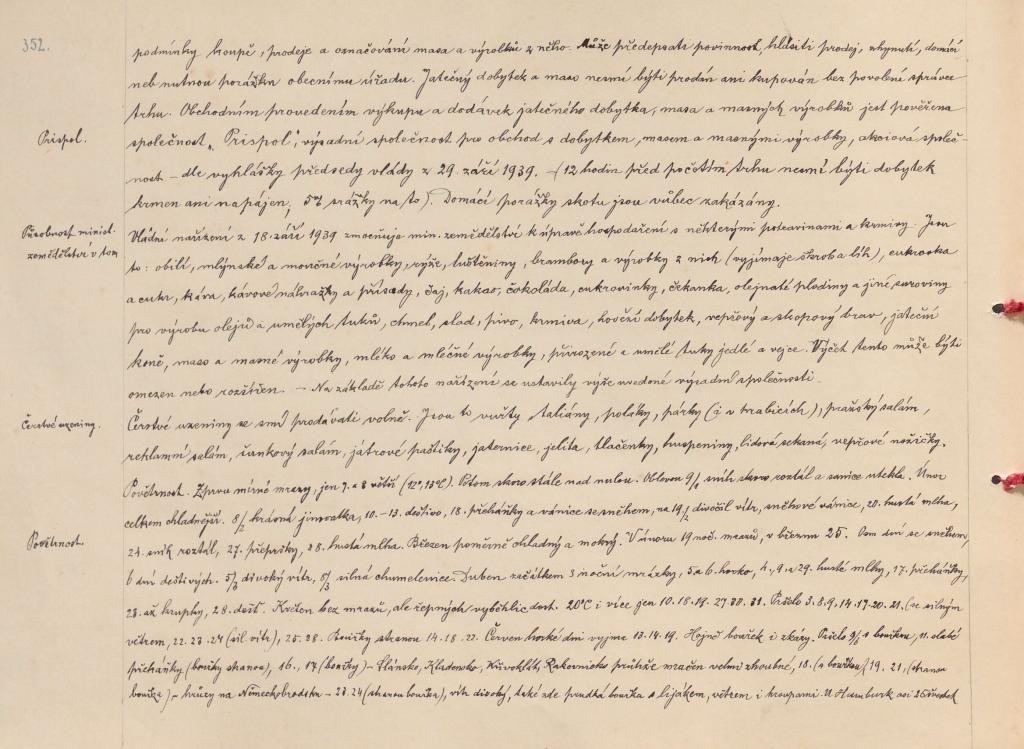 352.
podmínky koupě, prodeje a označování masa a výrobků z něho. Může předepsati povinnost, hlásiti prodej, uhynutí, domácí
neb nutnou porážku obecnímu úřadu. Jatečný dobytek a maso nesmí býti prodán ani kupován bez povolení správce
trhu. Obchodním provedením výkupu a dodávek jatečného dobytka, masa a masných výrobků jest pověřena
Prispol.
společnost „Prispol", výsadní společnost pro obchod s dobytkem, masem a masnými výrobky, akciová společ-
nost – dle vyhlášky předsedy vlády z 29. září 1939. – (12 hodin před počátím trhu nesmí býti dobytek
krmen ani napájen, 5% srážky na to). Domácí porážky skotu jsou vůbec zakázány.
Působnost minist.
zemědělství v tom
Vládní nařízení z 18. září 1939 zmocňuje min. zemědělství k úpravě hospodaření s některými potravinami a krmivy. Jsou
to: obilí, mlýnské a moučné výrobky, rýže, luštěniny, brambory a výrobky z nich (vyjímaje škrob a líh), cukrovka
a cukr, káva, kávové náhražky a přísady, čaj, kakao, čokoláda, cukrovinky, čekanka, olejnaté plodiny a jiné suroviny
pro výrobu olejů a umělých tuků, chmel, slad, pivo, krmiva, hovězí dobytek, vepřový a skopový brav, jateční
koně, maso a masné výrobky, mléko a mléčné výrobky, přirozené a umělé tuky jedlé a vejce. Výčet tento může býti
omezen nebo rozšířen. – Na základě tohoto nařízení se ustavily výše uvedené výsadní společnosti.
Čerstvé uzeniny.
Čerstvé uzeniny se smí prodávati volně. Jsou to vuřty, taliány, poláky, párky (i v krabicích), pražský salám,
reklamní salám, šunkový salám, játrové paštiky, jaternice, jelita, tlačenky, huspeniny, lidová sekaná, vepřové nožičky.
Povětrnost. Zprva mírné mrazy, jen 7. a 8 větší (12°, 13°C). Potom skoro stále nad nulou. Oblevou 9/1 sníh skoro roztál a sanice utekla. Únor
celkem chladnější. 8/2 krásná jinovatka, 10.–13. deštivo, 18. přeháňky a vánice se sněhem, na 19/2 divočil vítr, sněhové vánice, 20. hustá mlha,
Povětrnost.
24. sníh roztál, 27. přepršky, 28. hustá mlha. Březen poměrně chladný a mokrý. V únoru 19 noč. mrazů, v březnu 25. Osm dní se sněhem,
6 dní deštivých. 5/3 divoký vítr, 8/3 silná chumelenice. Duben začátkem 3 noční mrázky, 5. a 6. horko, 4., 9. a 29. husté mlhy, 17. přeháňky,
23. až kroupky, 28. déšť. Květen bez mrazů, ale teplných výběhlic dost. 20°C i více jen 10. 18. 19. 27. 30. 31. Pršelo 3. 8. 9., 14. 19. 20. 21. (se silným
větrem, 22. 23. 24 (sil. vítr), 25. 28. Bouřky stranou 14. 18. 22. Červen horké dni vyjma 13. 14. 19. Hojně bouřek i zkázy. Pršelo 9/6 s bouřkou, 11. slabé
přeháňky (bouřky stranou), 16., 17. (bouřky) – Slánsko, Kladensko, Křivoklát, Rakovnicko průtrže mračen velmi zhoubné, 18. (s bouřkou), 19. 21. (stranou
bouřka) – hrůzy na Německobrodsku – 23. 24 (stranou bouřka), vítr divoký, také zde prudká bouřka s lijákem, větrem i kroupami. U Humburk asi